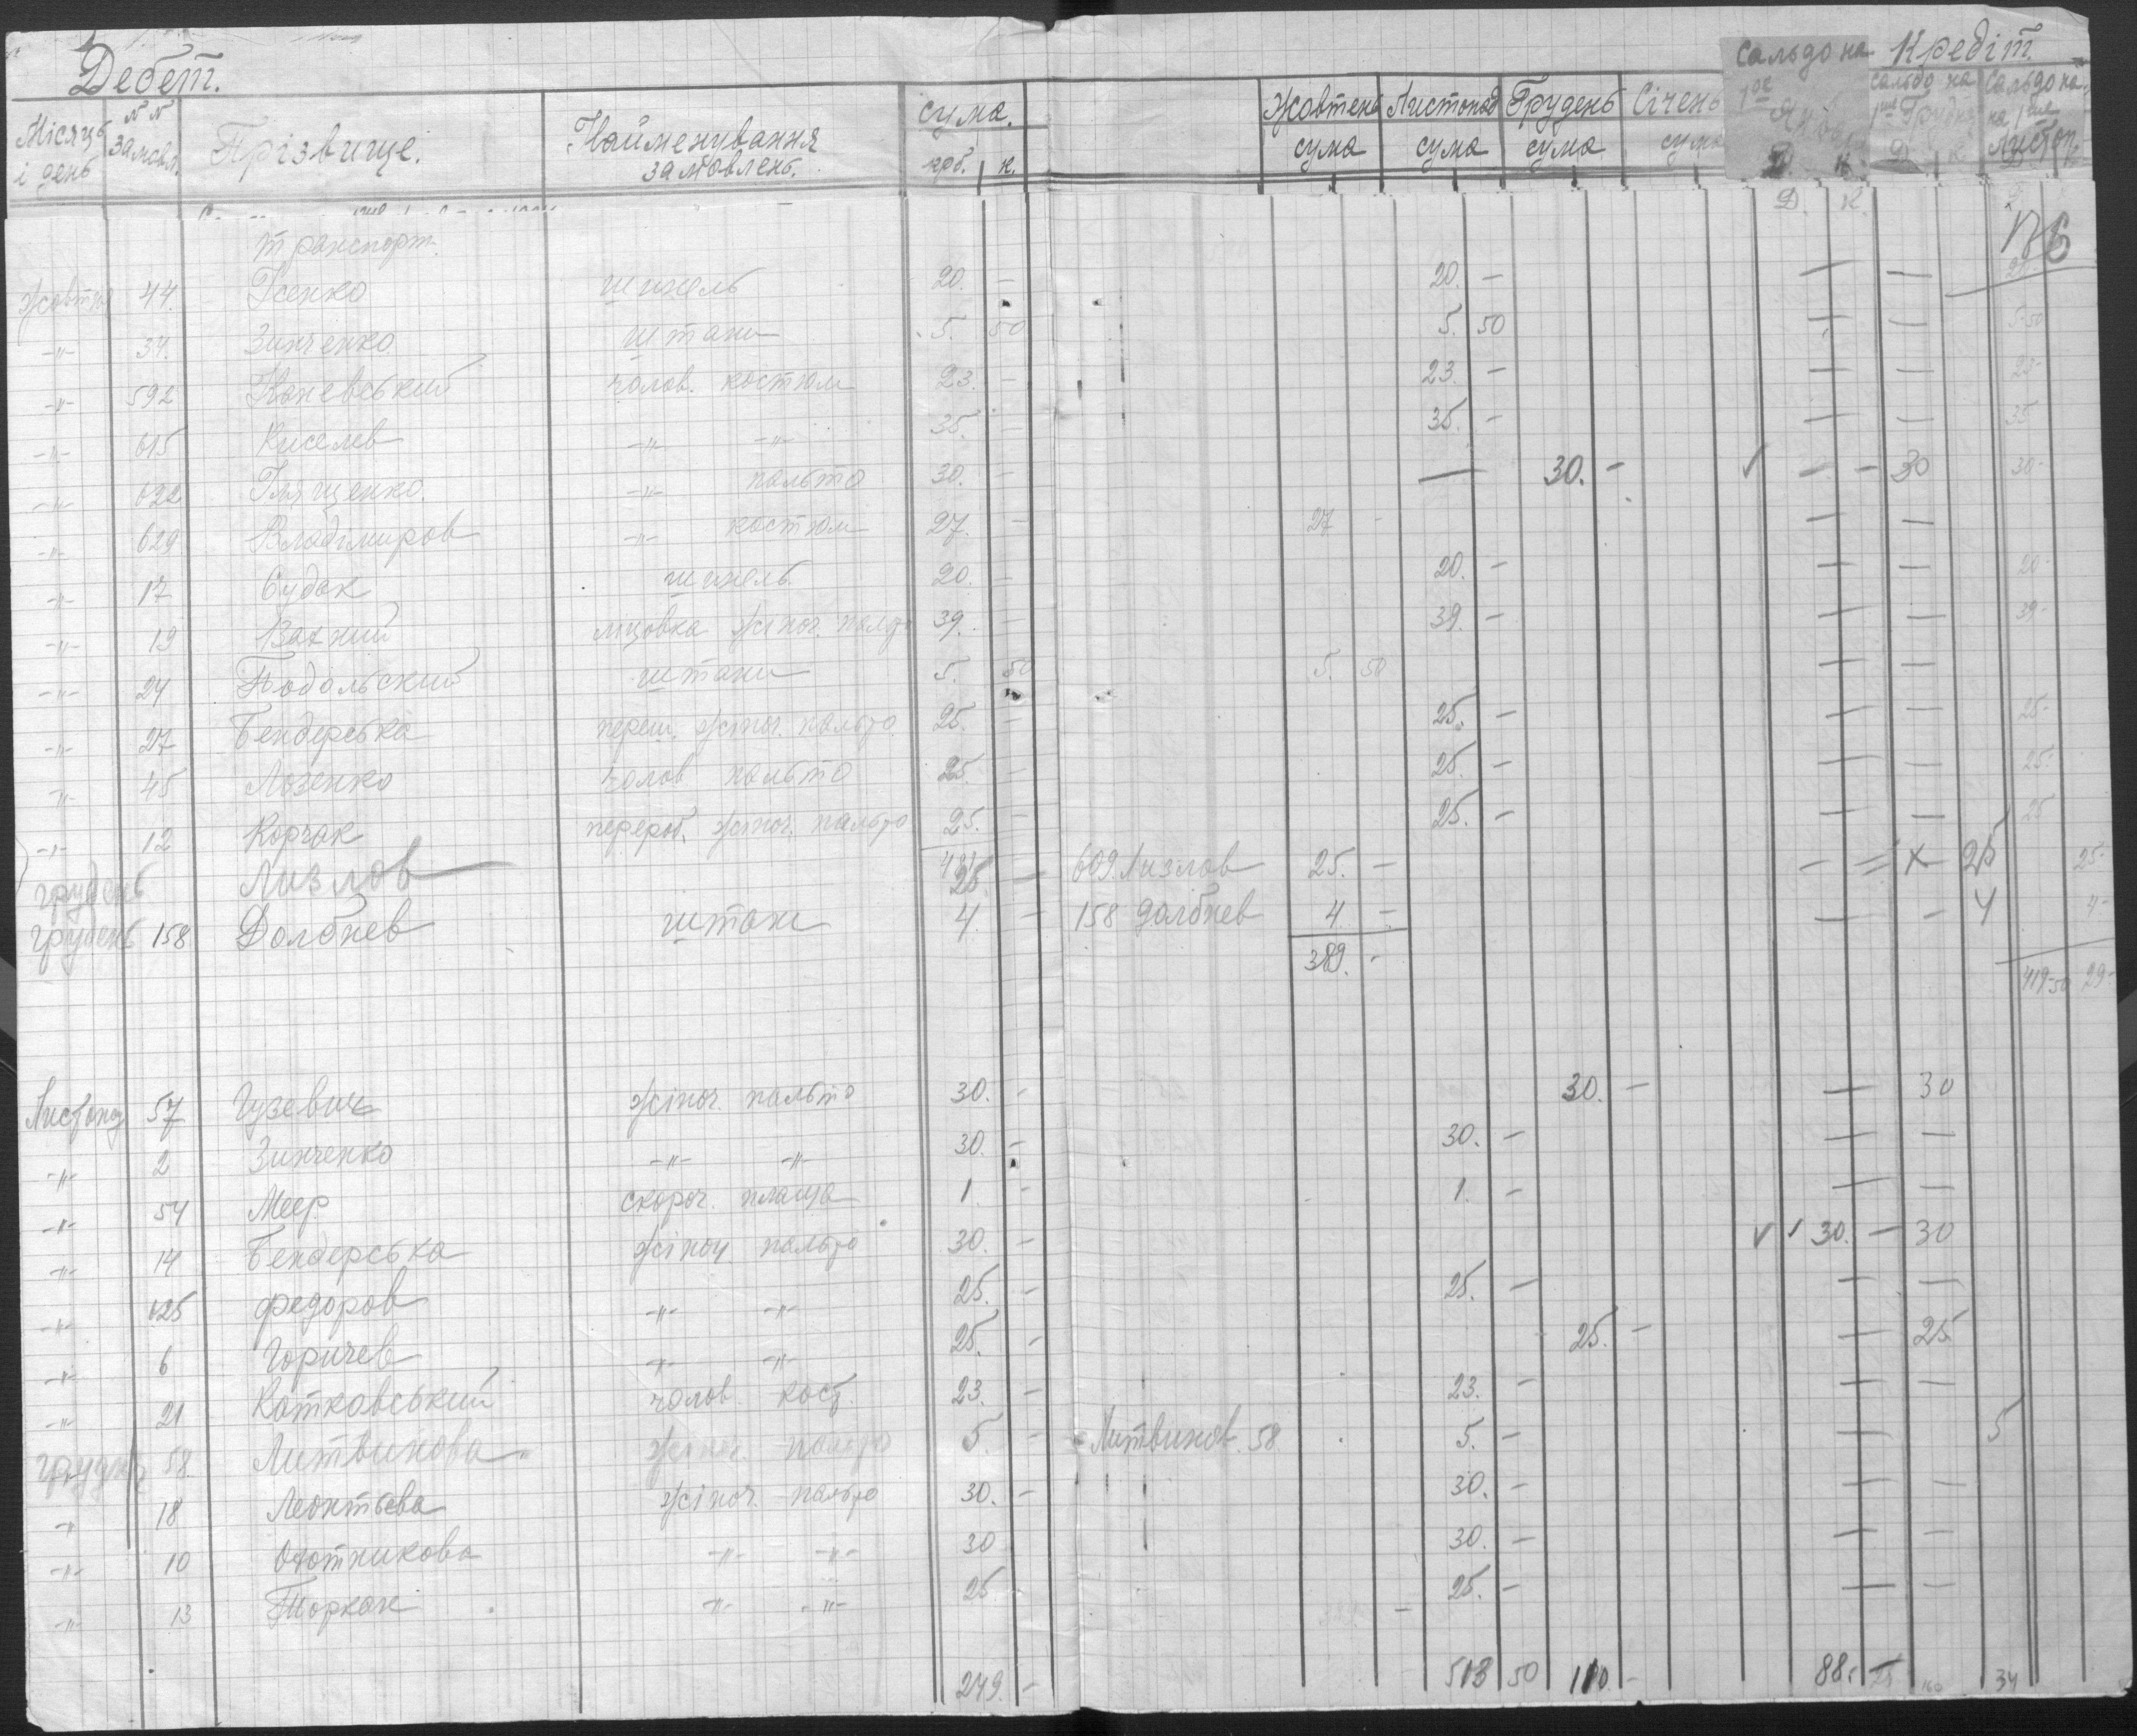 Дебет. Кредіт.
Місяць і день | №№ замовл. | Прізвище. | Найменування замовлень. | сума. крб. | к. | Жовтень сума | Листопад сума | Грудень сума | Січень сума | Сальдо на 1ое Января Д. К. | Сальдо на 1ше Грудня Д. К. | Сальдо на 1ше Листоп.
Д. К.
транспорт.
Жовтня 44. Усенко шинель 20. — 20. — — —
-"- 34. Зинченко штани 5. 50 5. 50 — — 5-50
-"- 592 Каневський чолов. костюм 23. — 23. — — — 23-
-"- 615 Киселев -"- -"- 35. — 35. — — — 35
-"- 622 Глященко. -"- пальто 30. — — 30. — ✓ — — 30 30-
-"- 629 Владімиров -"- костюм 27. — 27 - — —
-"- 17 Судак шинель 20. — 20. — — — 20-
-"- 19 Вахний ліцовка жіноч. пальто 39. — 39. — — — 39-
-"- 24 Подольский штани 5. 50 5. 50 — —
-"- 27 Бендерська переш. жіноч. пальто 25. — 25. — — — 25-
-"- 45 Лозенко чолов. пальто 25. — 25. — — — 25-
-"- 12 Корчак перероб. жіноч. пальто 25. — 25. — — — 25
грудень Лизлов 25. — 609. Лизлов 25. — — = х 25 25-
грудень 158 Долбнев штани 4. — 158 Долбнев 4 — — — 4 4-
389. -
419-50 29-
Листопад 57 Гузевич жіноч. пальто 30. - 30. — — 30
-"- 2 Зинченко -"- -"- 30. — 30. — — —
-"- 54 Меер скороч. плаща 1. - 1. - — —
-"- 14 Бендерська жіноч. пальто 30. — ✓ 30. — 30
-"- 625 Федоров -"- -"- 25. — 25. — — —
-"- 6 Горичев -"- -"- 25. - 25. — — 25
-"- 21 Катковський чолов. кост. 23. — 23. — — —
грудня 58. Литвинова жіноч. пальто 5. - Литвинов. 58 5. — — 5
-"- 18 Леонтьева жіноч. пальто 30. — 30. — — —
-"- 10 Охотникова -"- -"- 30 30. — — —
-"- 13 Торкан -"- -"- 25 25. — — —
249. — 513 50 110 - 88. — 34